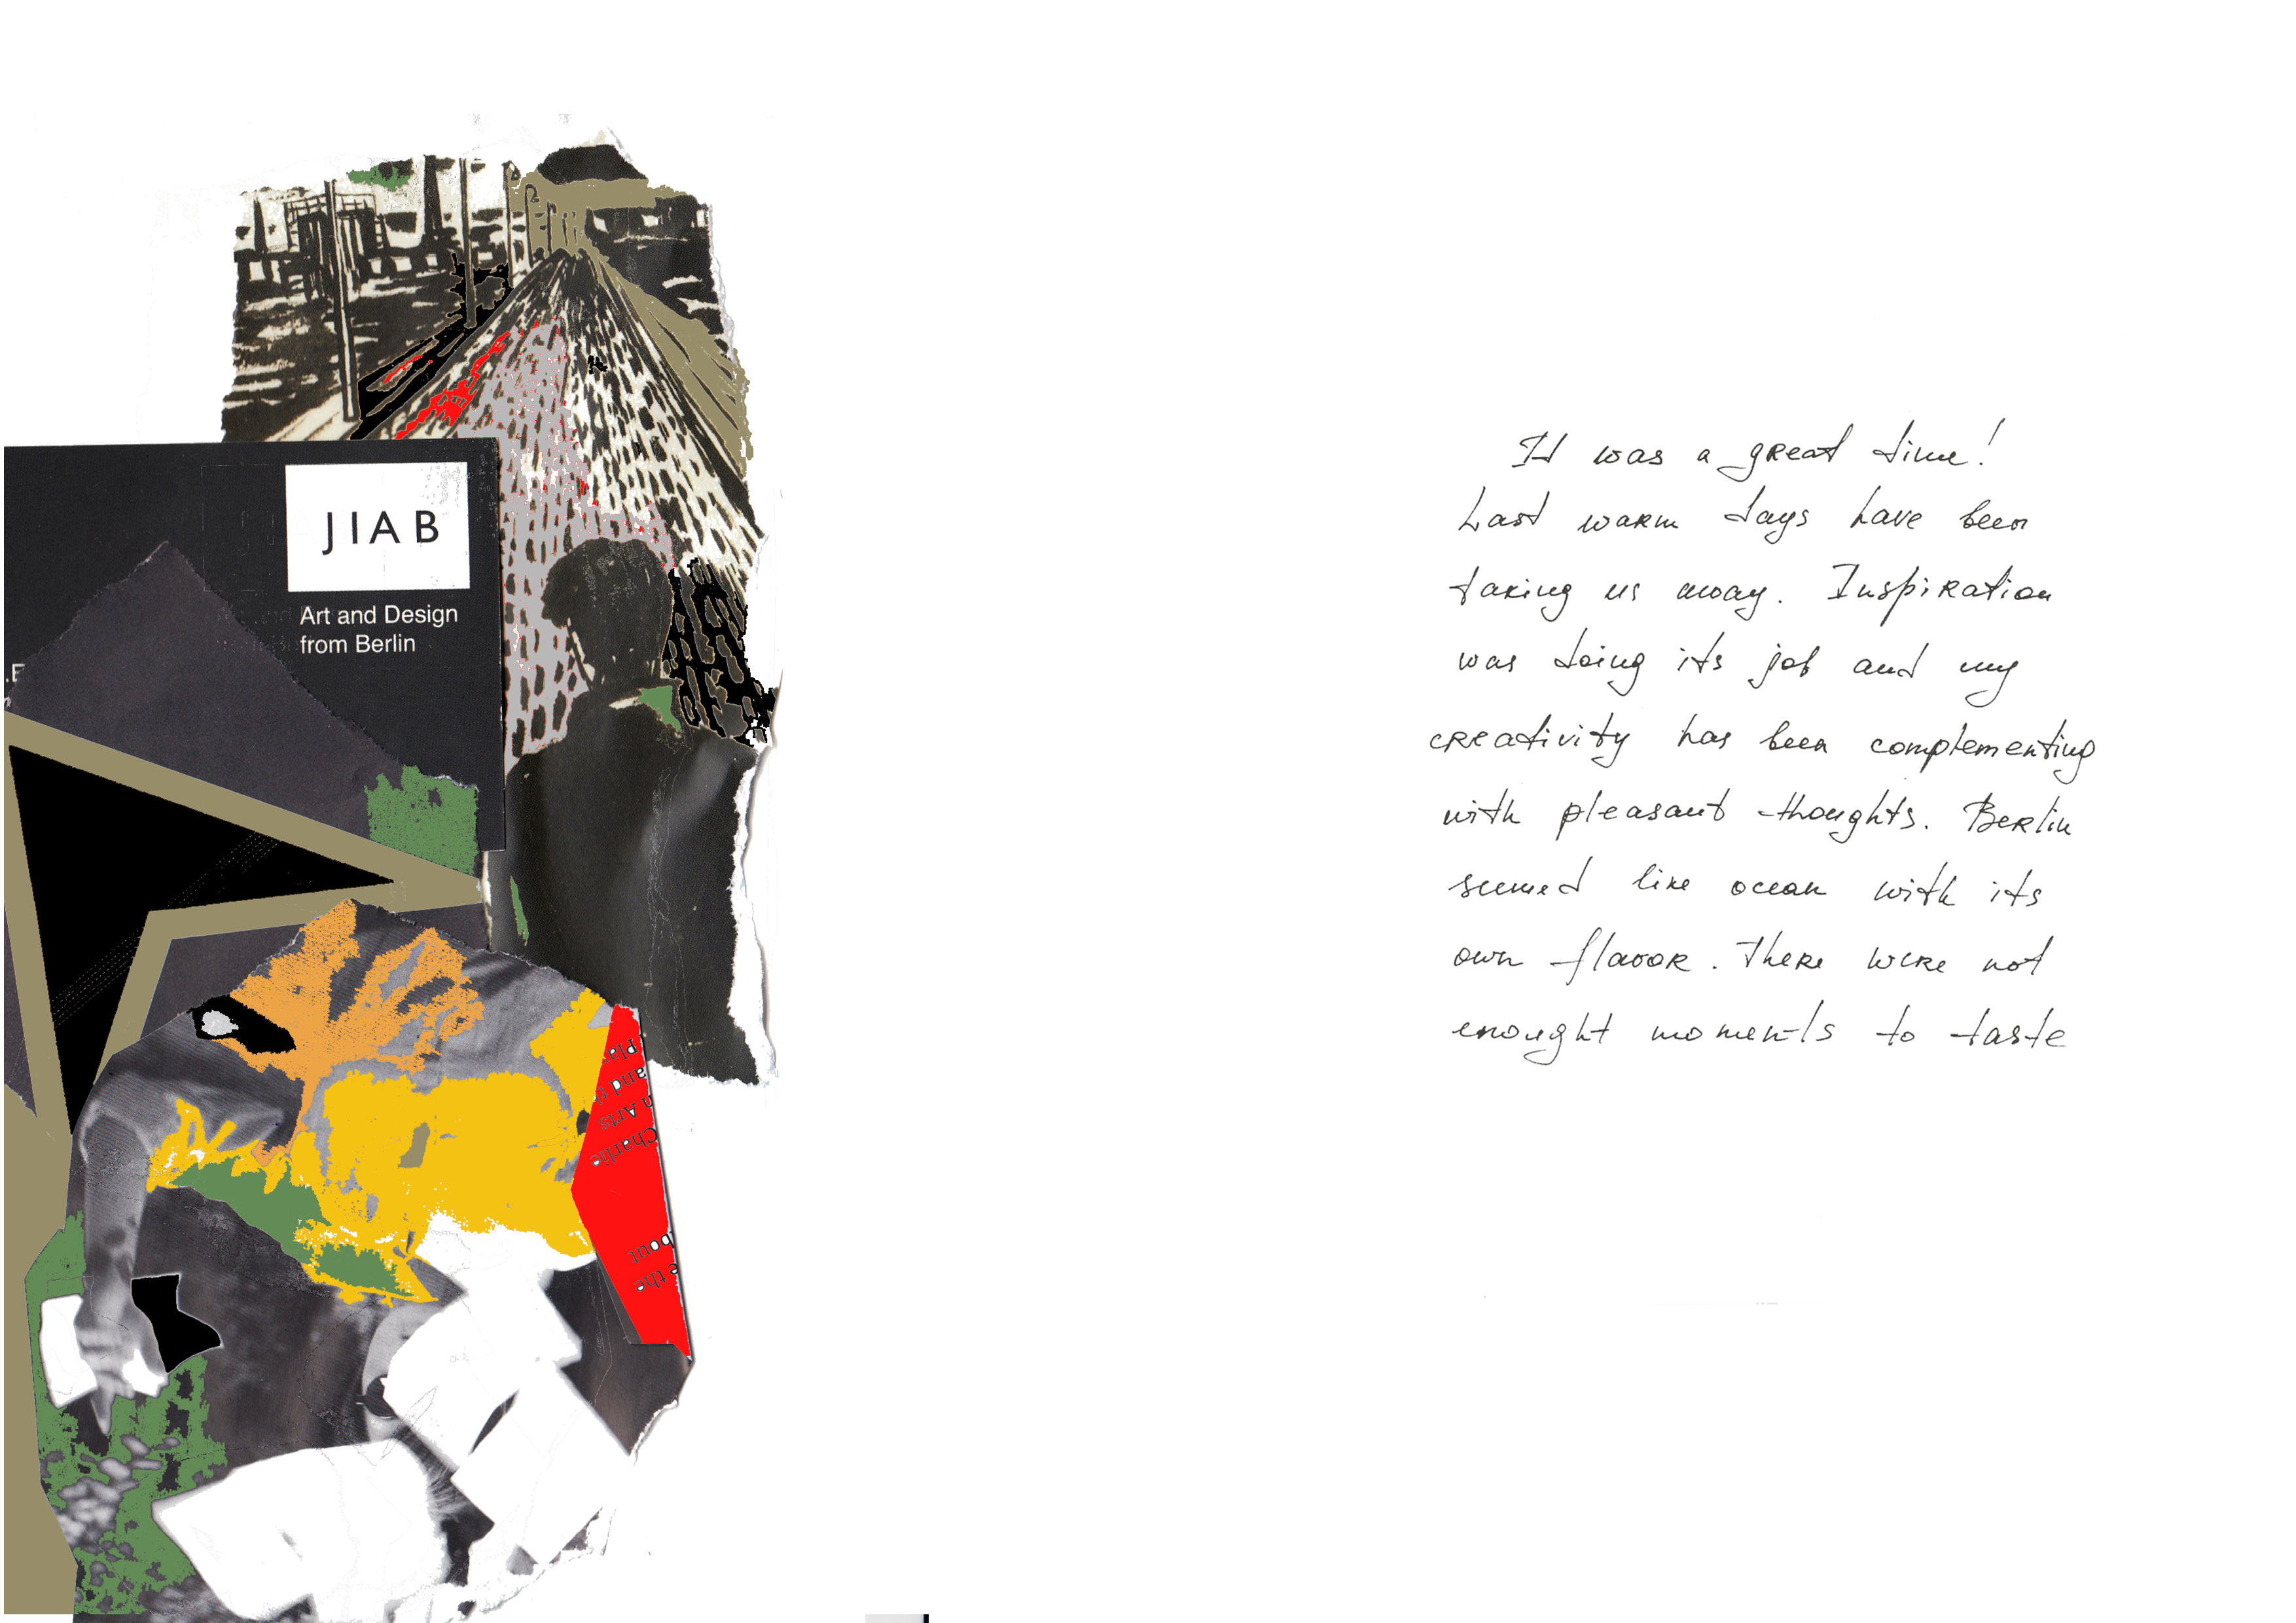 JIAB
Art and Design
from Berlin
.E
Pla
and t
n Arts
Charlie
bout
e the
It was a great time!
Last warm days have been
taking us away. Inspiration
was doing its job and my
creativity has been complementing
with pleasant thoughts. Berlin
seemed like ocean with its
own flavor. There were not
enought moments to taste